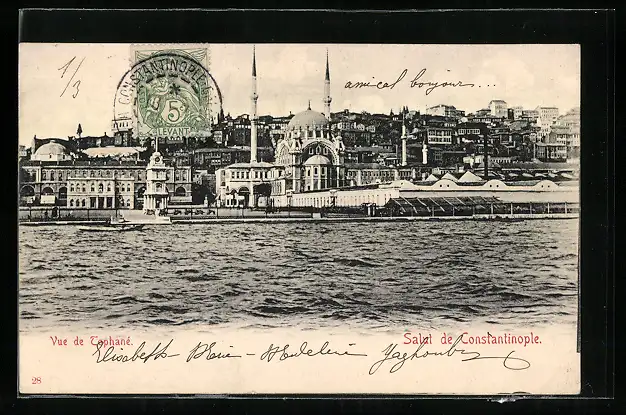 1/3
CONSTANTINOPLE
5
LEVANT
amical bonjour...
Vue de Tophané.
Salut de Constantinople.
Elisabeth - Marie - Madeleine Yaghoubi
28